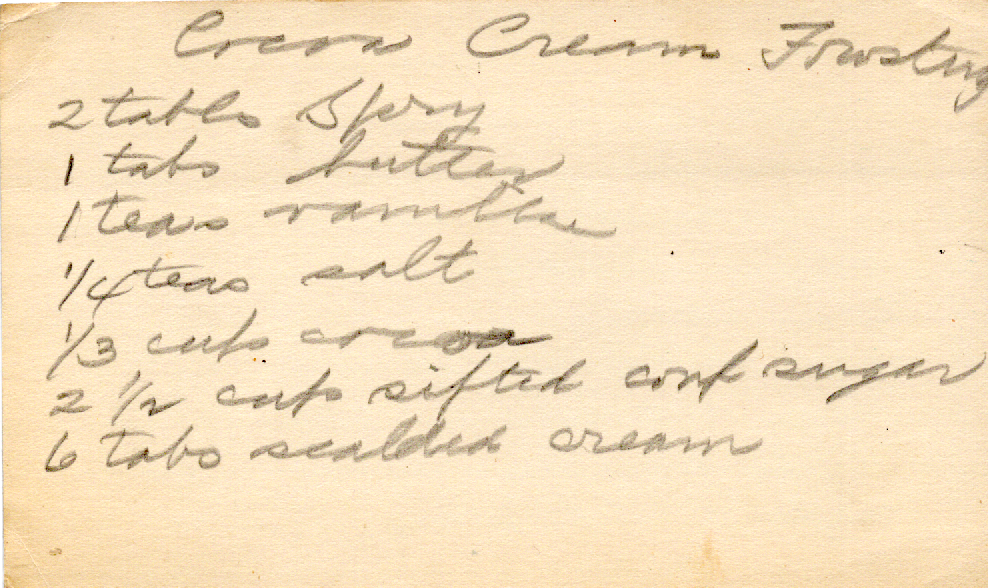 Cocoa Cream Frosting
2 tabls Spry
1 tabs butter
1 teas vanilla
1/4 teas salt
1/3 cup cocoa
2 1/2 cups sifted conf sugar
6 tabs scalded cream